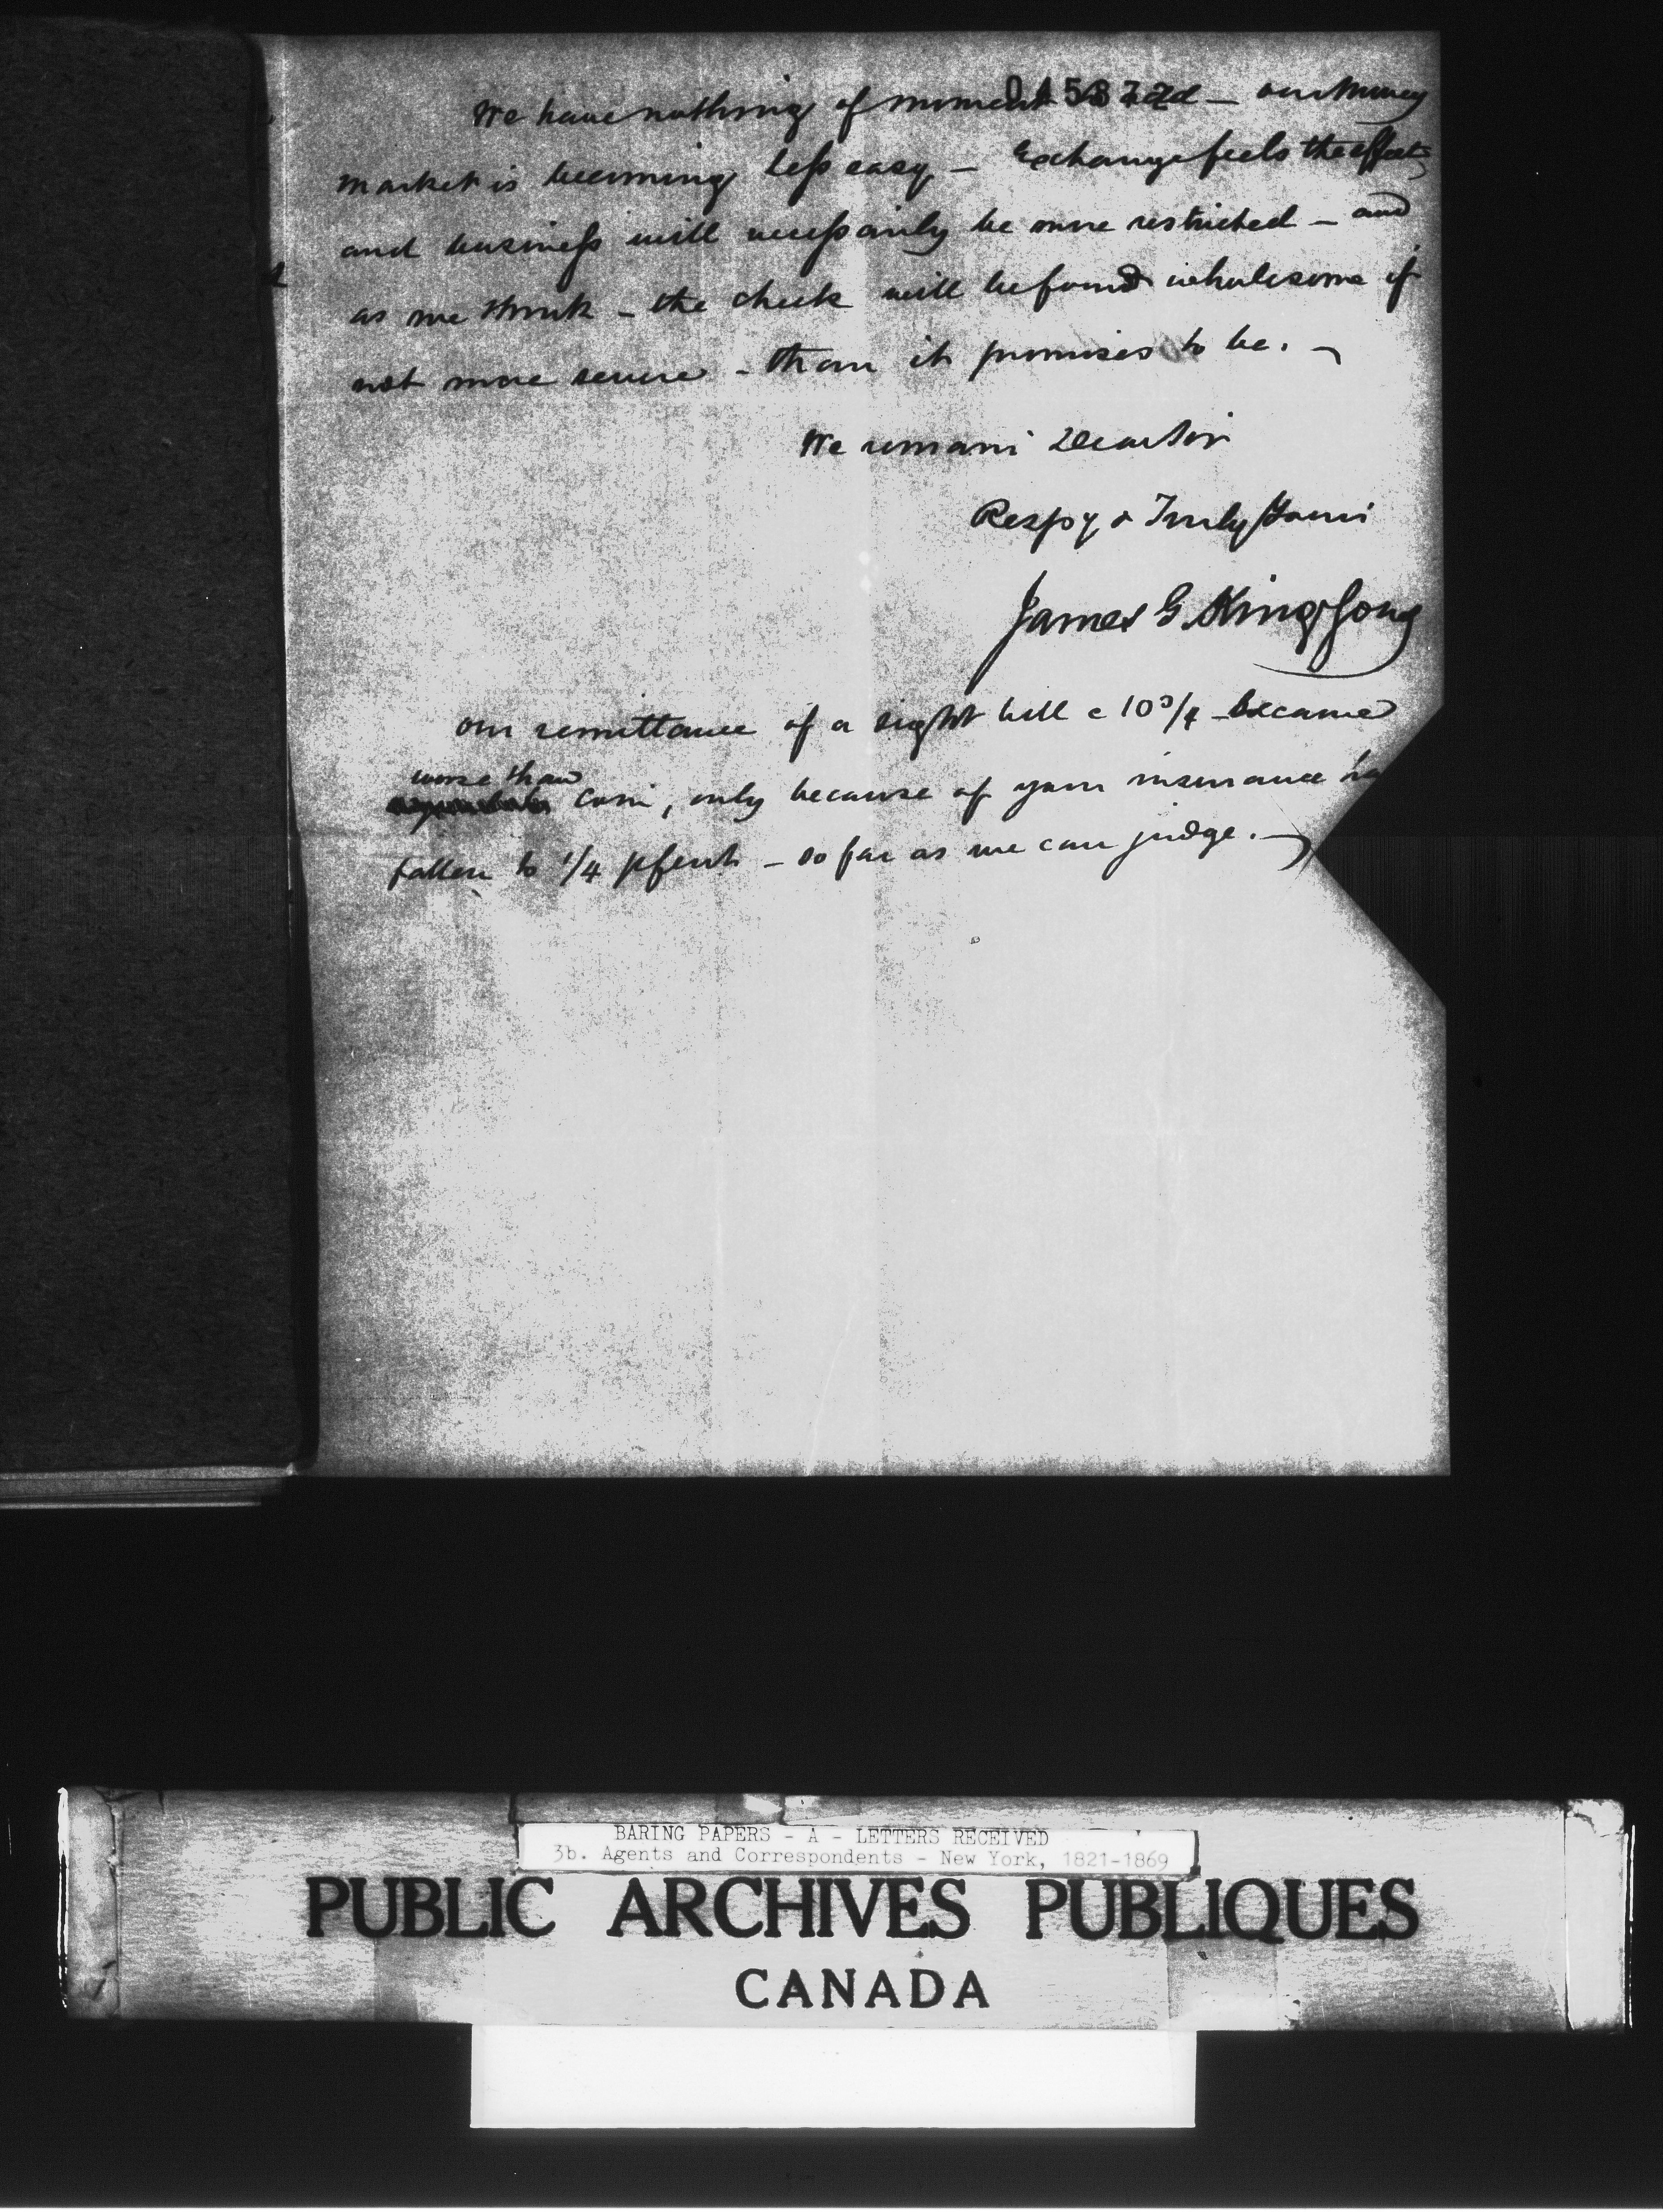 015872
We have nothing of moment to add — our Money
market is becoming less easy — Exchange feels the effects
and business will necessarily be more restricted — and
as we think — the check will be found wholesome if
not more severe — than it promises to be. —
We remain Dear Sir
Respy & Truly Yours
James G. King & Sons
our remittance of a sight bill @ 10 3/4 — became
worse than
coin, only because of your insurance
fallen to 1/4 pCent — so far as we can judge. —
BARING PAPERS - A - LETTERS RECEIVED
3b. Agents and Correspondents - New York, 1821-1869
PUBLIC ARCHIVES PUBLIQUES
CANADA